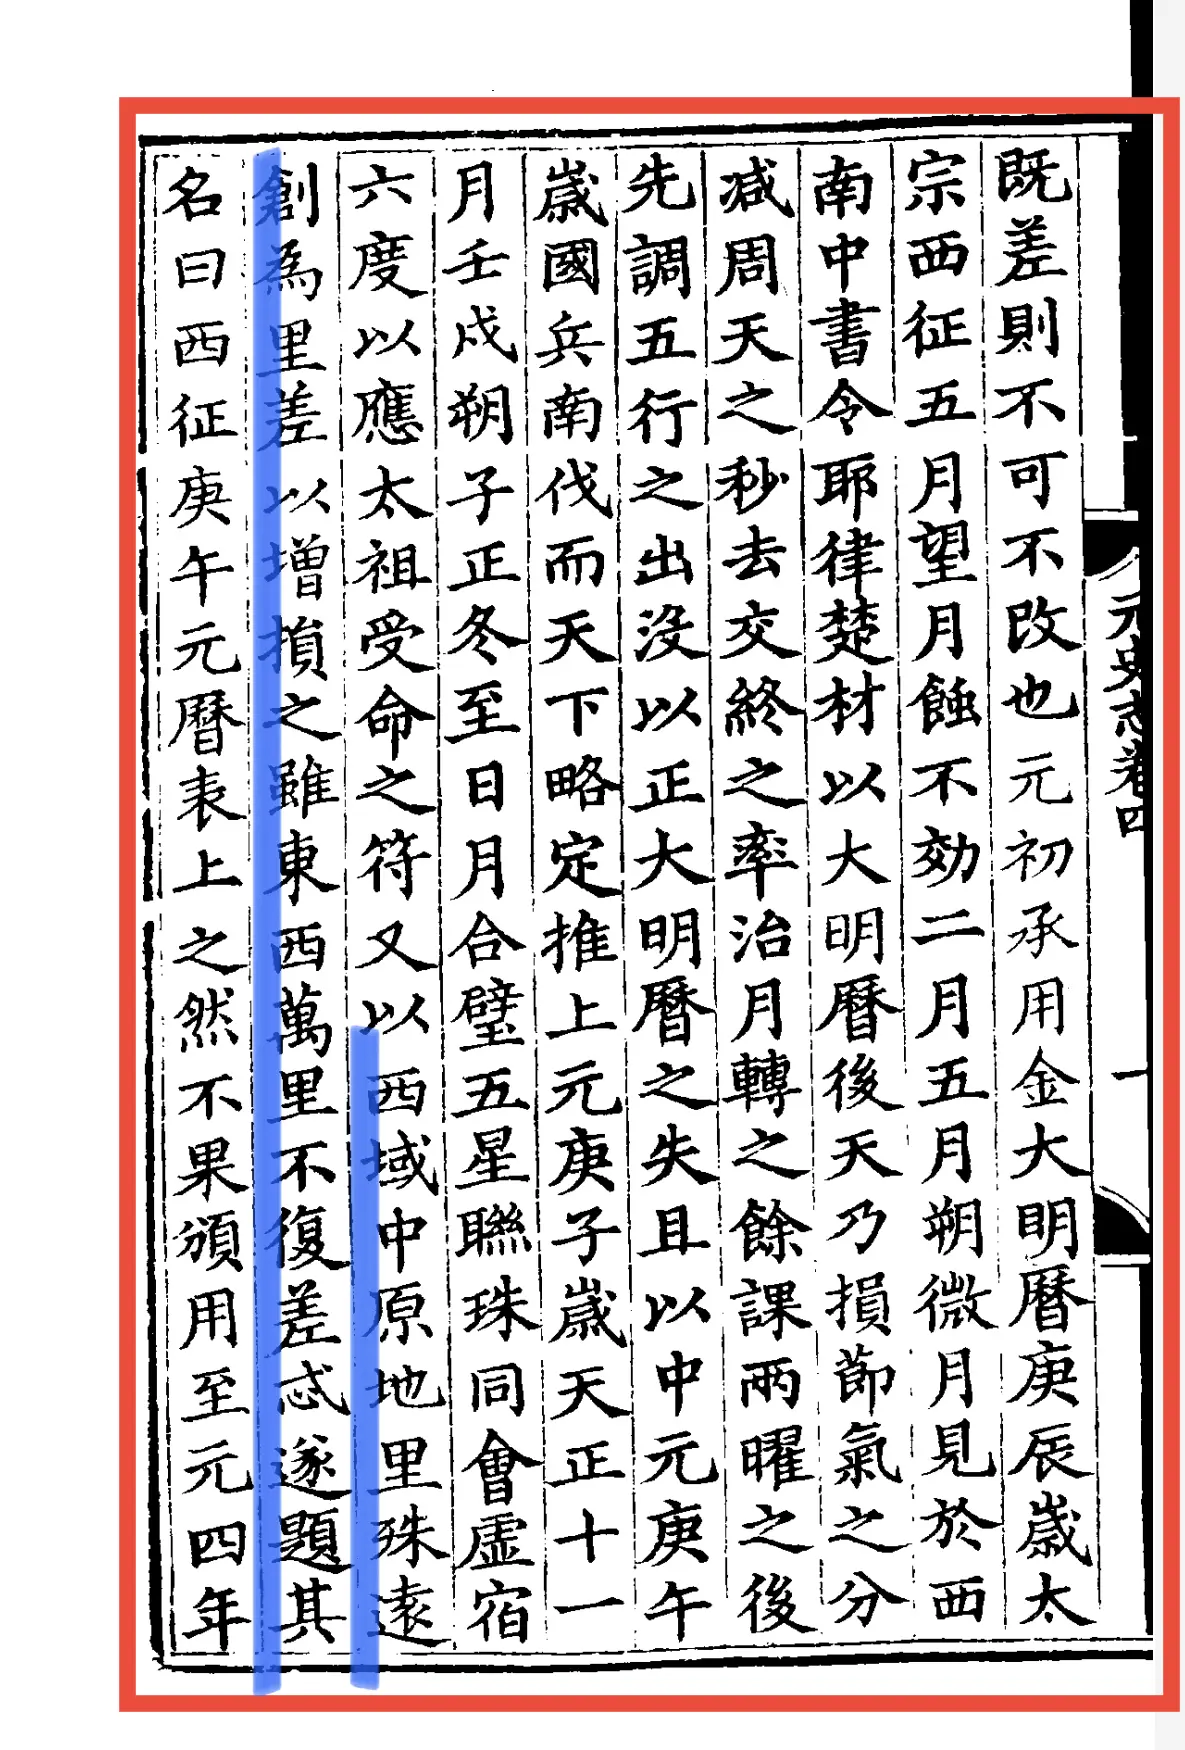 元史志卷四
一
既差則不可不改也元初承用金大明曆庚辰歲太
宗西征五月望月蝕不効二月五月朔微月見於西
南中書令耶律楚材以大明曆後天乃損節氣之分
减周天之秒去交終之率治月轉之餘課兩曜之後
先調五行之出没以正大明曆之失且以中元庚午
歲國兵南伐而天下略定推上元庚子歲天正十一
月壬戌朔子正冬至日月合璧五星聯珠同會虚宿
六度以應太祖受命之符又以西域中原地里殊遠
創為里差以增損之雖東西萬里不復差忒遂題其
名曰西征庚午元曆表上之然不果頒用至元四年